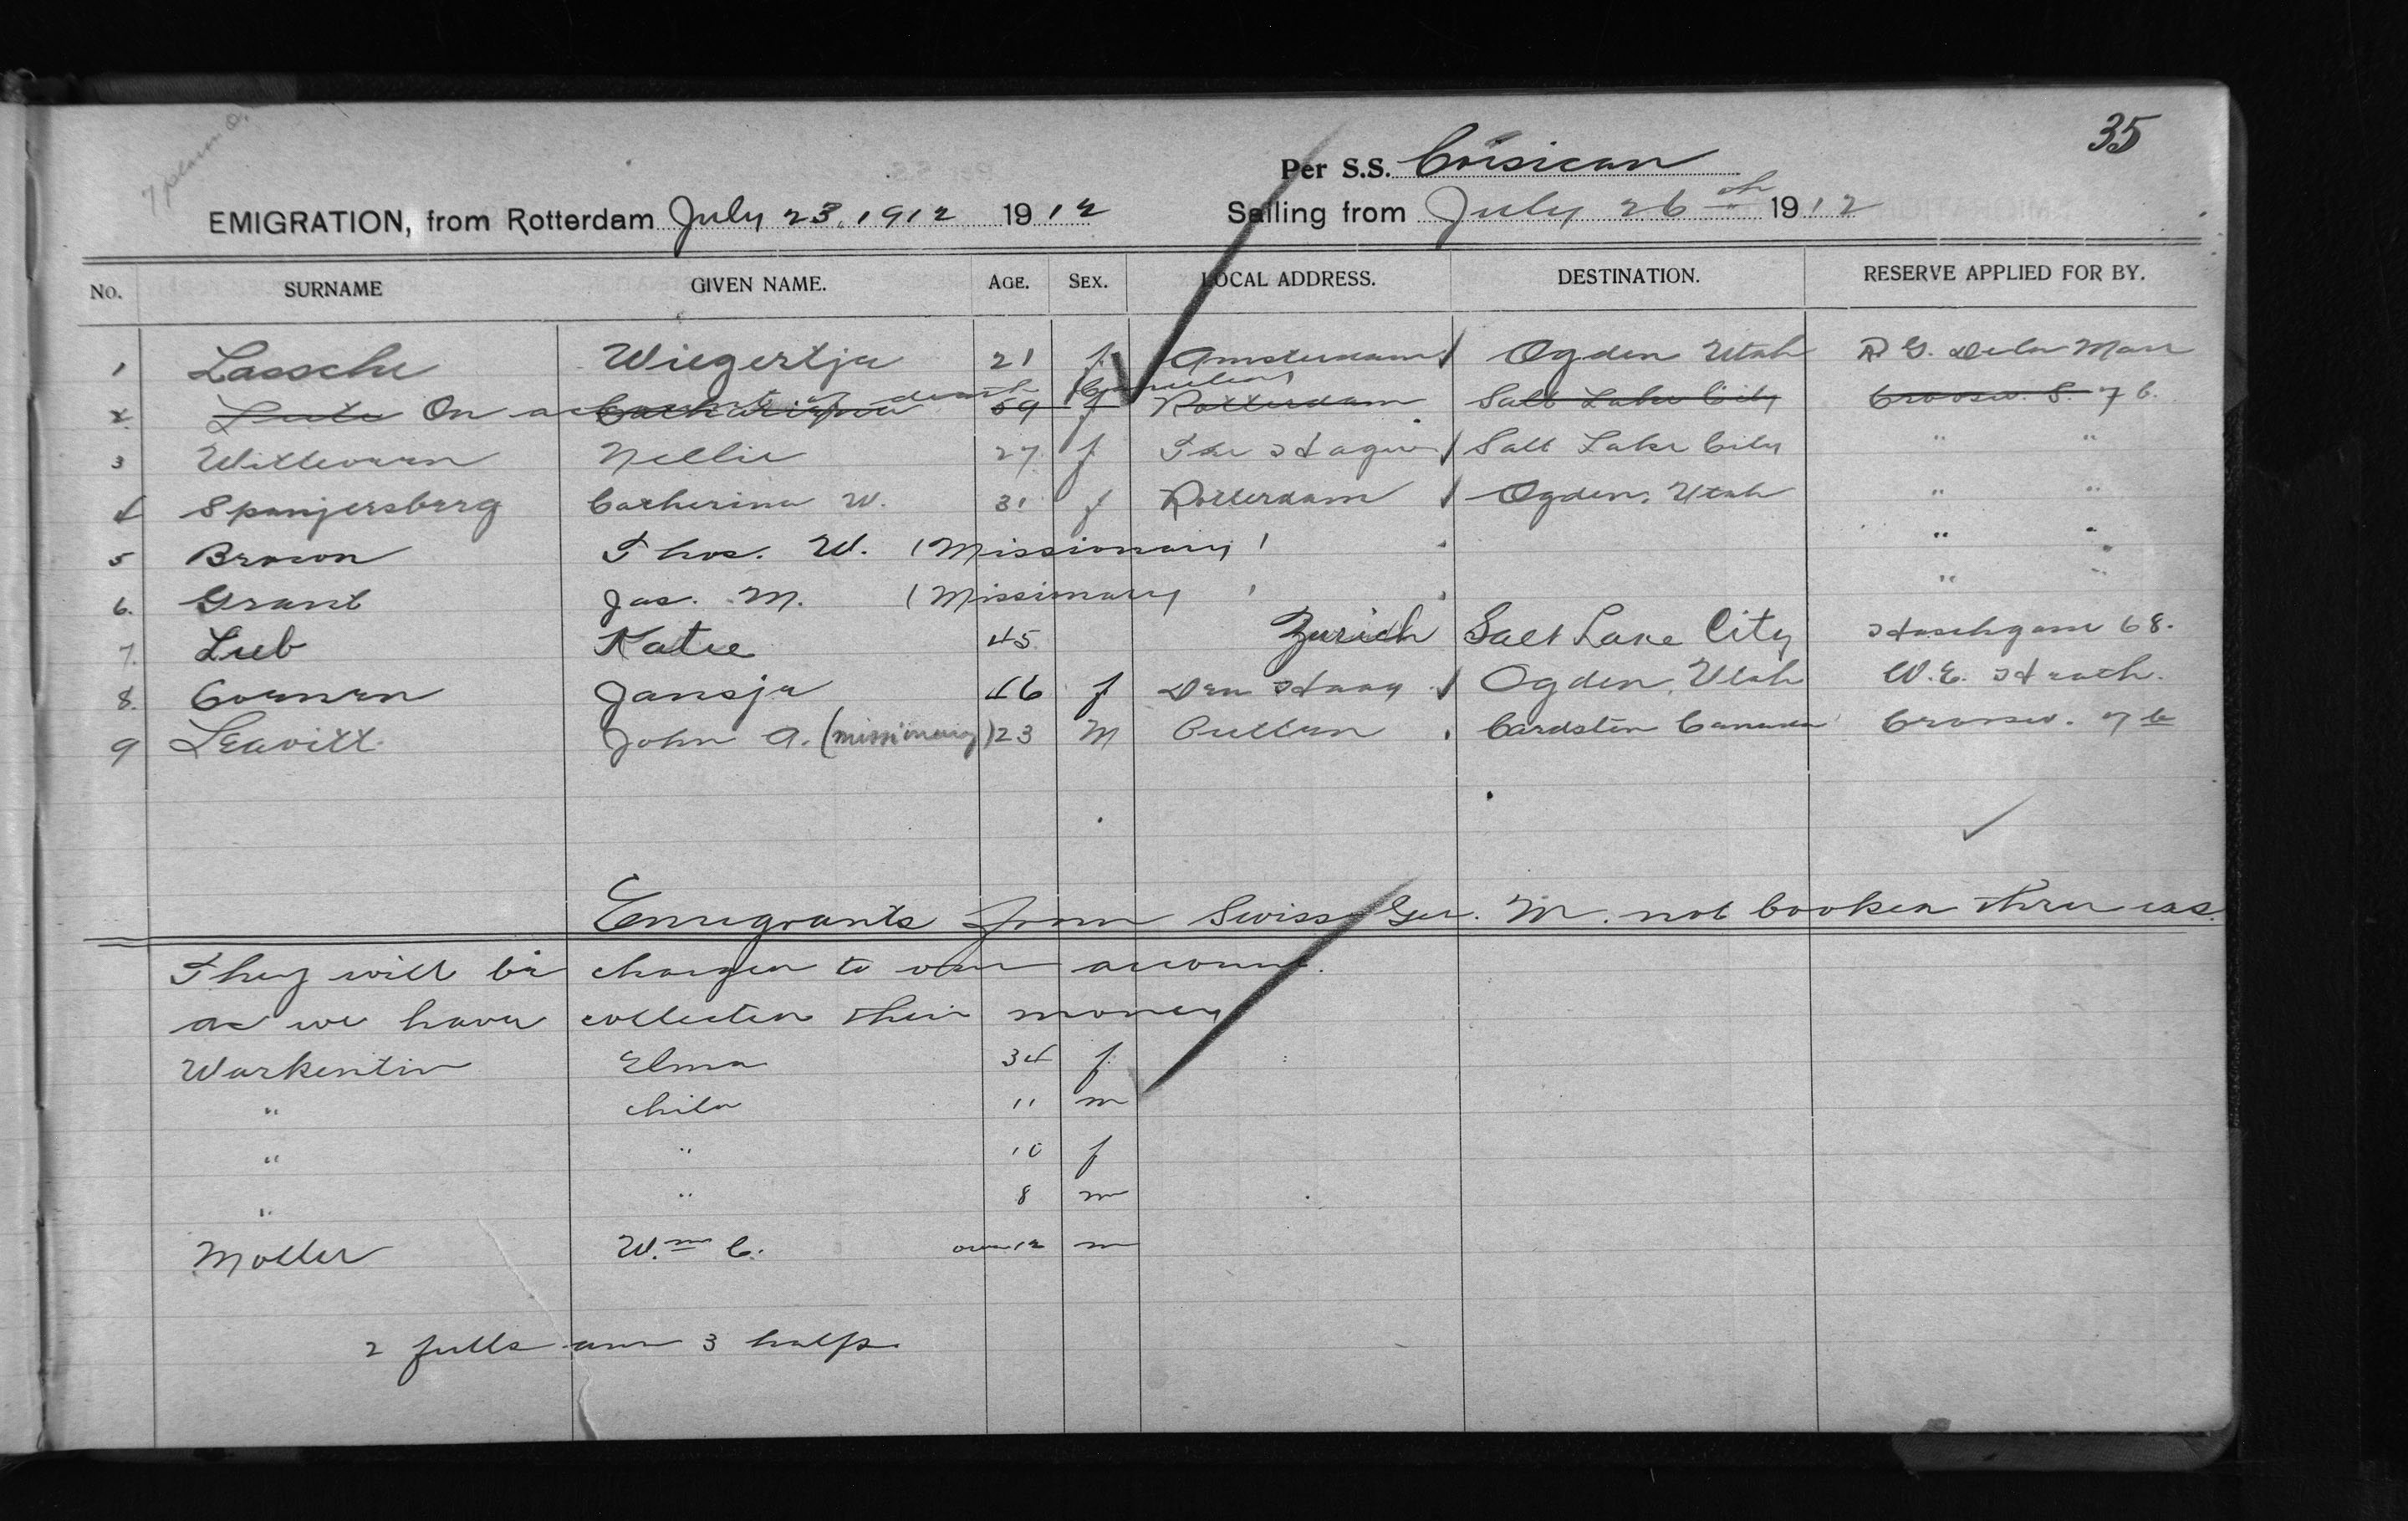 35
Per S.S. Corsican
EMIGRATION, from Rotterdam July 23, 1912 1912 Sailing from July 26th 1912
No. SURNAME GIVEN NAME. AGE. SEX. LOCAL ADDRESS. DESTINATION. RESERVE APPLIED FOR BY.
1 Lassche Wiegertja 21 f. Amsterdam Ogden Utah R G. Dela Mare
2 On account of death Cancelled 59 f Rotterdam Salt Lake City Croosw. S. 7 b.
3 Witteveen Nellie 27 f The Hague Salt Lake City " "
4 Spanjersberg Catherina W. 31 f Rotterdam Ogden, Utah " "
5 Brown Thos. W. (Missionary) " "
6. Grant Jas. M. (Missionary) " "
7. Lieb Katie 45 Zurich Salt Lake City Hoschgasse 68.
8. Jansja 46 f Den Haag Ogden, Utah W.E.
9 Leavitt John A. (missionary) 23 M Cardston Canada Croosw. 7 b
Emigrants from Swiss & Ger. M. not booked thru us.
They will be charged to our account.
as we have collected their money
Warkentin Elma 34 f.
" child 11 m
" " 10 f
" " 8 m
Moller Wm C. over 12 m
2 fulls and 3 halfs.